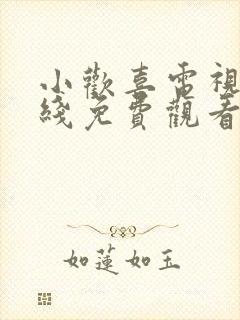 小歡喜電視
綫免費觀看
如蓮如玉